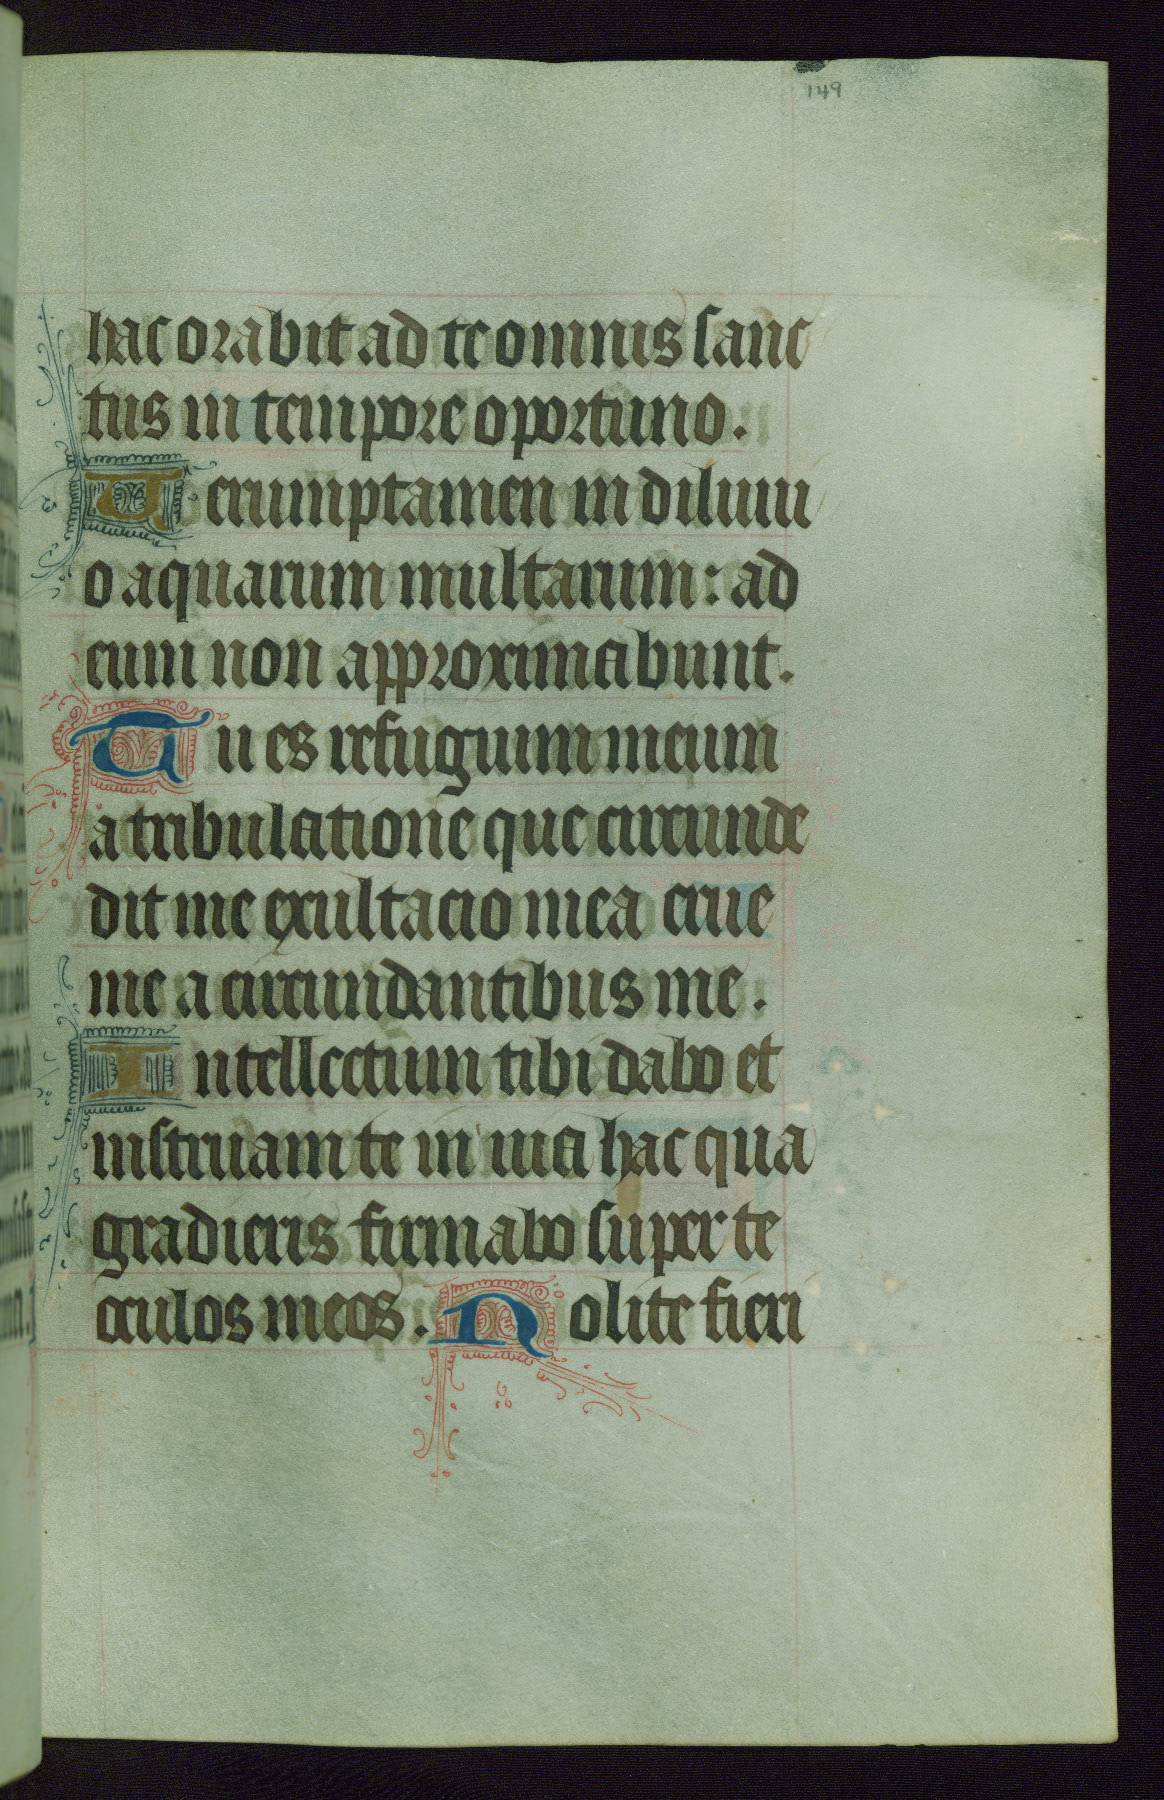 149
hac orabit ad te omnis sanc
tus in tempore oportuno.
Uerumptamen in diluui
o aquarum multarum: ad
eum non approximabunt.
Tu es refugium meum
a tribulatione que circumde
dit me exultacio mea erue
me a circundantibus me.
Intellectum tibi dabo et
instruam te in uia hac qua
gradieris firmabo super te
oculos meos. Nolite fieri